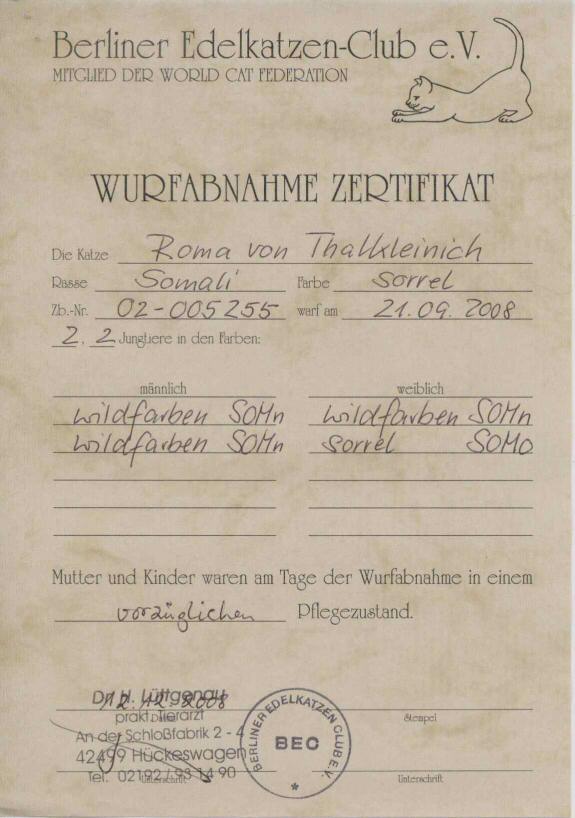 Berliner Edelkatzen-Club e.V.
MITGLIED DER WORLD CAT FEDERATION
WURFABNAHME ZERTIFIKAT
Die Katze Roma von Thalkleinich
Rasse Somali Farbe sorrel
Zb.-Nr. 02-005255 warf am 21.09.2008
2. 2 Jungtiere in den Farben:
männlich weiblich
wildfarben SOMn wildfarben SOMn
wildfarben SOMn sorrel SOMo
Mutter und Kinder waren am Tage der Wurfabnahme in einem
vorzüglichen Pflegezustand.
Dr. H. Lüttgenau
12.12.2008
prakt. Tierarzt
Stempel
An der Schloßfabrik 2 - 4
42499 Hückeswagen
Tel. 02192 / 93 14 90
Unterschrift Unterschrift
BERLINER EDELKATZEN CLUB E.V.
BEC